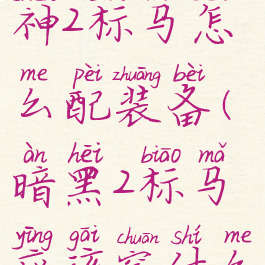 神2标马怎
me pèi zhuāng bèi
么配装备(
àn hēi biāo mǎ
暗黑2标马
yīng gāi chuān shí me
应该穿什么